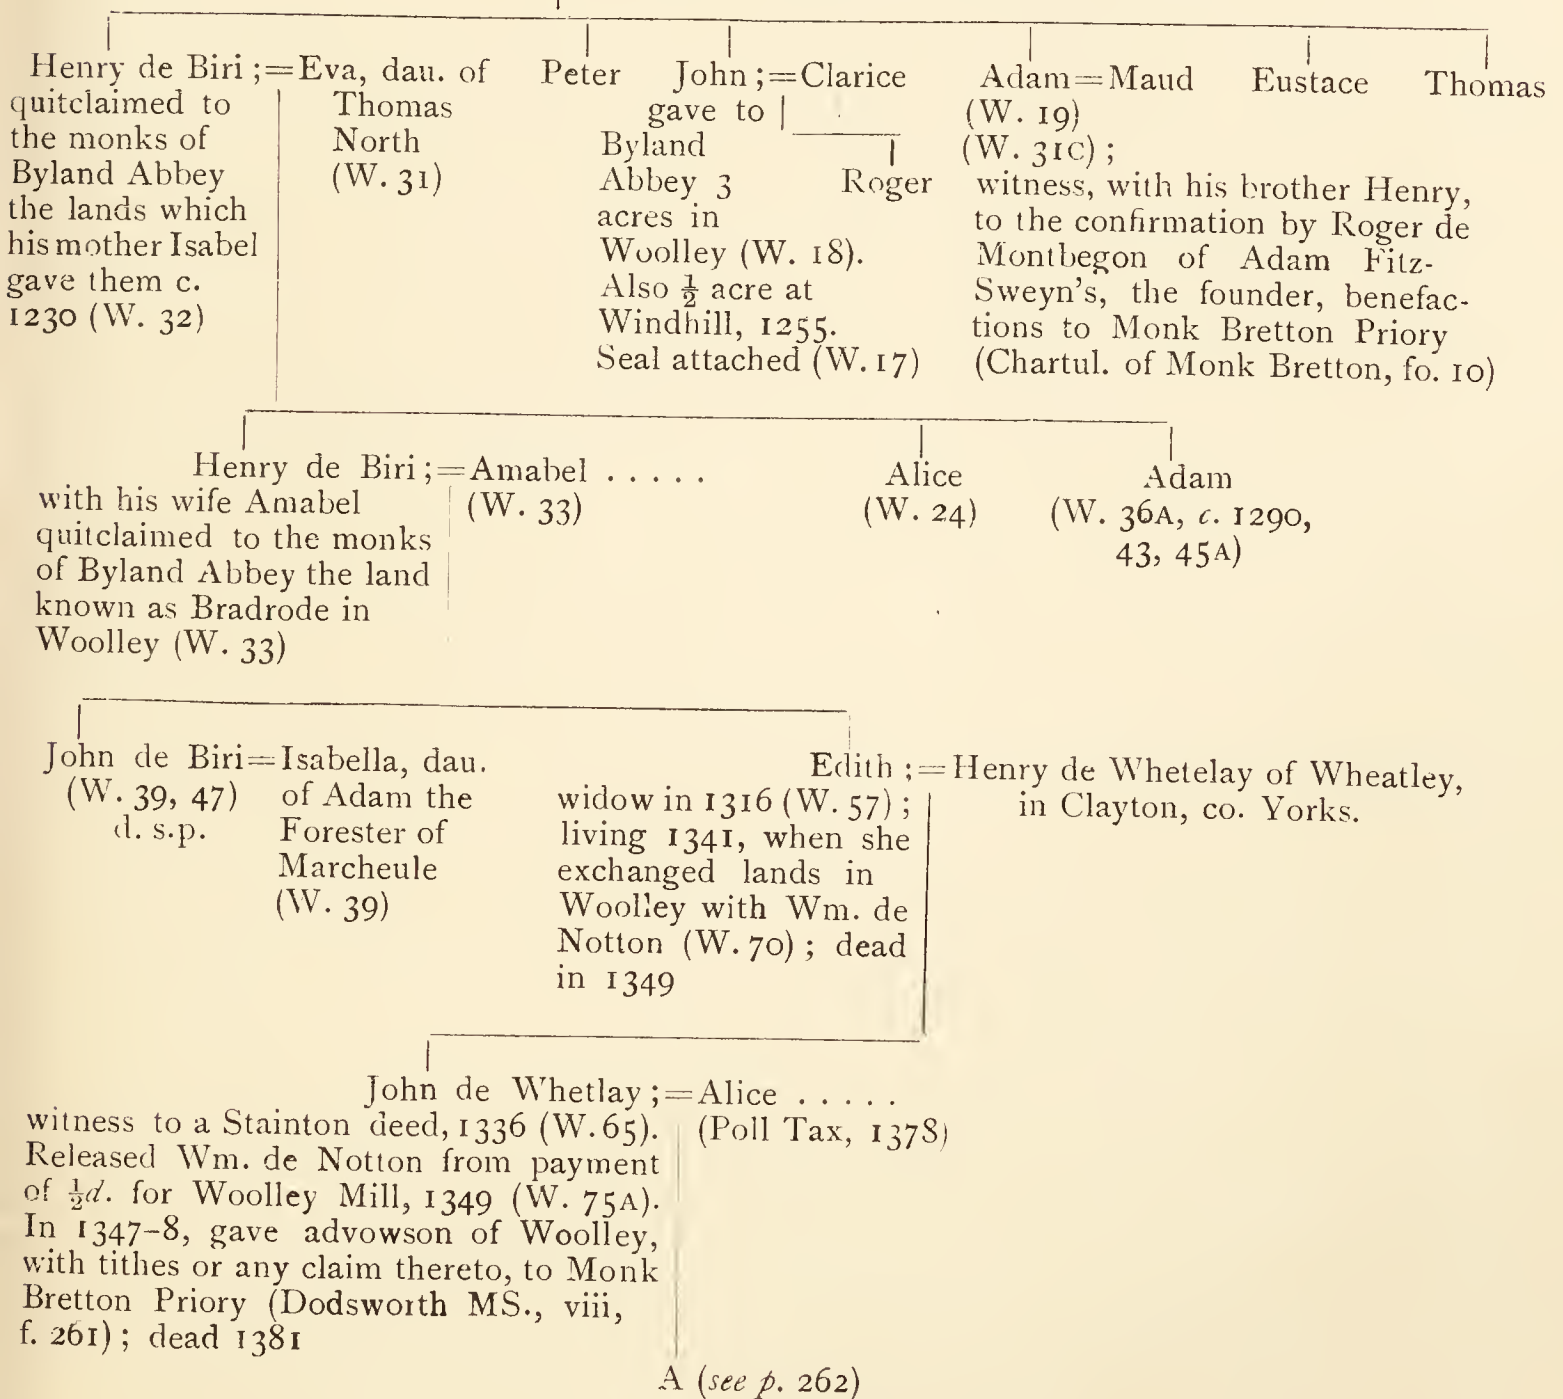 Henry de Biri ;=Eva, dau. of
quitclaimed to
the monks of
Byland Abbey
the lands which
his mother Isabel
gave them c.
1230 (W. 32)
Thomas
North
(W. 31)
Peter
John ;=Clarice
gave to
Byland
Abbey 3
acres in
Woolley (W. 18).
Also ½ acre at
Windhill, 1255.
Seal attached (W. 17)
Roger
Adam=Maud
(W. 19)
(W. 31C) ;
witness, with his brother Henry,
to the confirmation by Roger de
Montbegon of Adam Fitz-
Sweyn's, the founder, benefac-
tions to Monk Bretton Priory
(Chartul. of Monk Bretton, fo. 10)
Eustace
Thomas
Henry de Biri ;=Amabel . . . . .
with his wife Amabel
quitclaimed to the monks
of Byland Abbey the land
known as Bradrode in
Woolley (W. 33)
(W. 33)
Alice
(W. 24)
Adam
(W. 36A, c. 1290,
43, 45A)
John de Biri=Isabella, dau.
(W. 39, 47)
d. s.p.
of Adam the
Forester of
Marcheule
(W. 39)
Edith ;=Henry de Whetelay of Wheatley,
in Clayton, co. Yorks.
widow in 1316 (W. 57) ;
living 1341, when she
exchanged lands in
Woolley with Wm. de
Notton (W. 70) ; dead
in 1349
John de Whetlay ;=Alice . . . . .
witness to a Stainton deed, 1336 (W. 65).
Released Wm. de Notton from payment
of ½d. for Woolley Mill, 1349 (W. 75A).
In 1347-8, gave advowson of Woolley,
with tithes or any claim thereto, to Monk
Bretton Priory (Dodsworth MS., viii,
f. 261) ; dead 1381
(Poll Tax, 1378)
A (see p. 262)